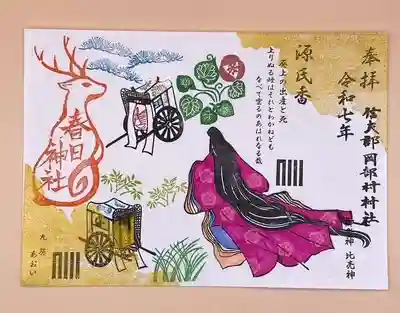 奉拝
令和七年
信夫郡岡部村村社
比売神
源氏香
葵上の出産と死
上りぬる煙はそれとわかねども
なべて雲ゐのあはれなる哉
春日
神社
九葵
あおい